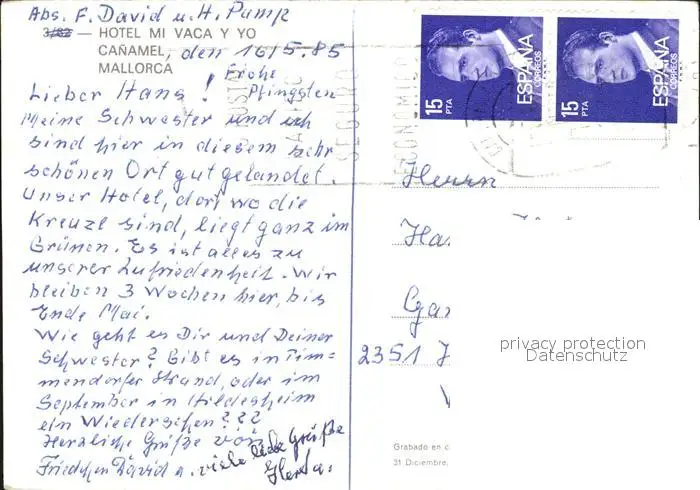 Abs. F. David u. H. Pump
3/82 — HOTEL MI VACA Y YO
CAÑAMEL, den 16/5.85
MALLORCA
Frohe
Pfingsten
Lieber Hans!
Meine Schwester und ich
sind hier in diesem sehr
schönen Ort gut gelandet.
Unser Hotel, dort wo die
Kreuze sind, liegt ganz im
Grünen. Es ist alles zu
unserer Zufriedenheit. Wir
bleiben 3 Wochen hier, bis
Ende Mai.
Wie geht es Dir und Deiner
Schwester? Gibt es in Tim=
mendorfer Strand, oder im
September in Hildesheim
ein Wiedersehen???
Herzliche Grüße von
Friedchen David u. viele liebe Grüße
Herta.
15 PTA
ESPAÑA
CORREOS
15 PTA
ESPAÑA
CORREOS
Herrn
Ha
Gar
2351
privacy protection
Datenschutz
Grabado en
31 Diciembre,